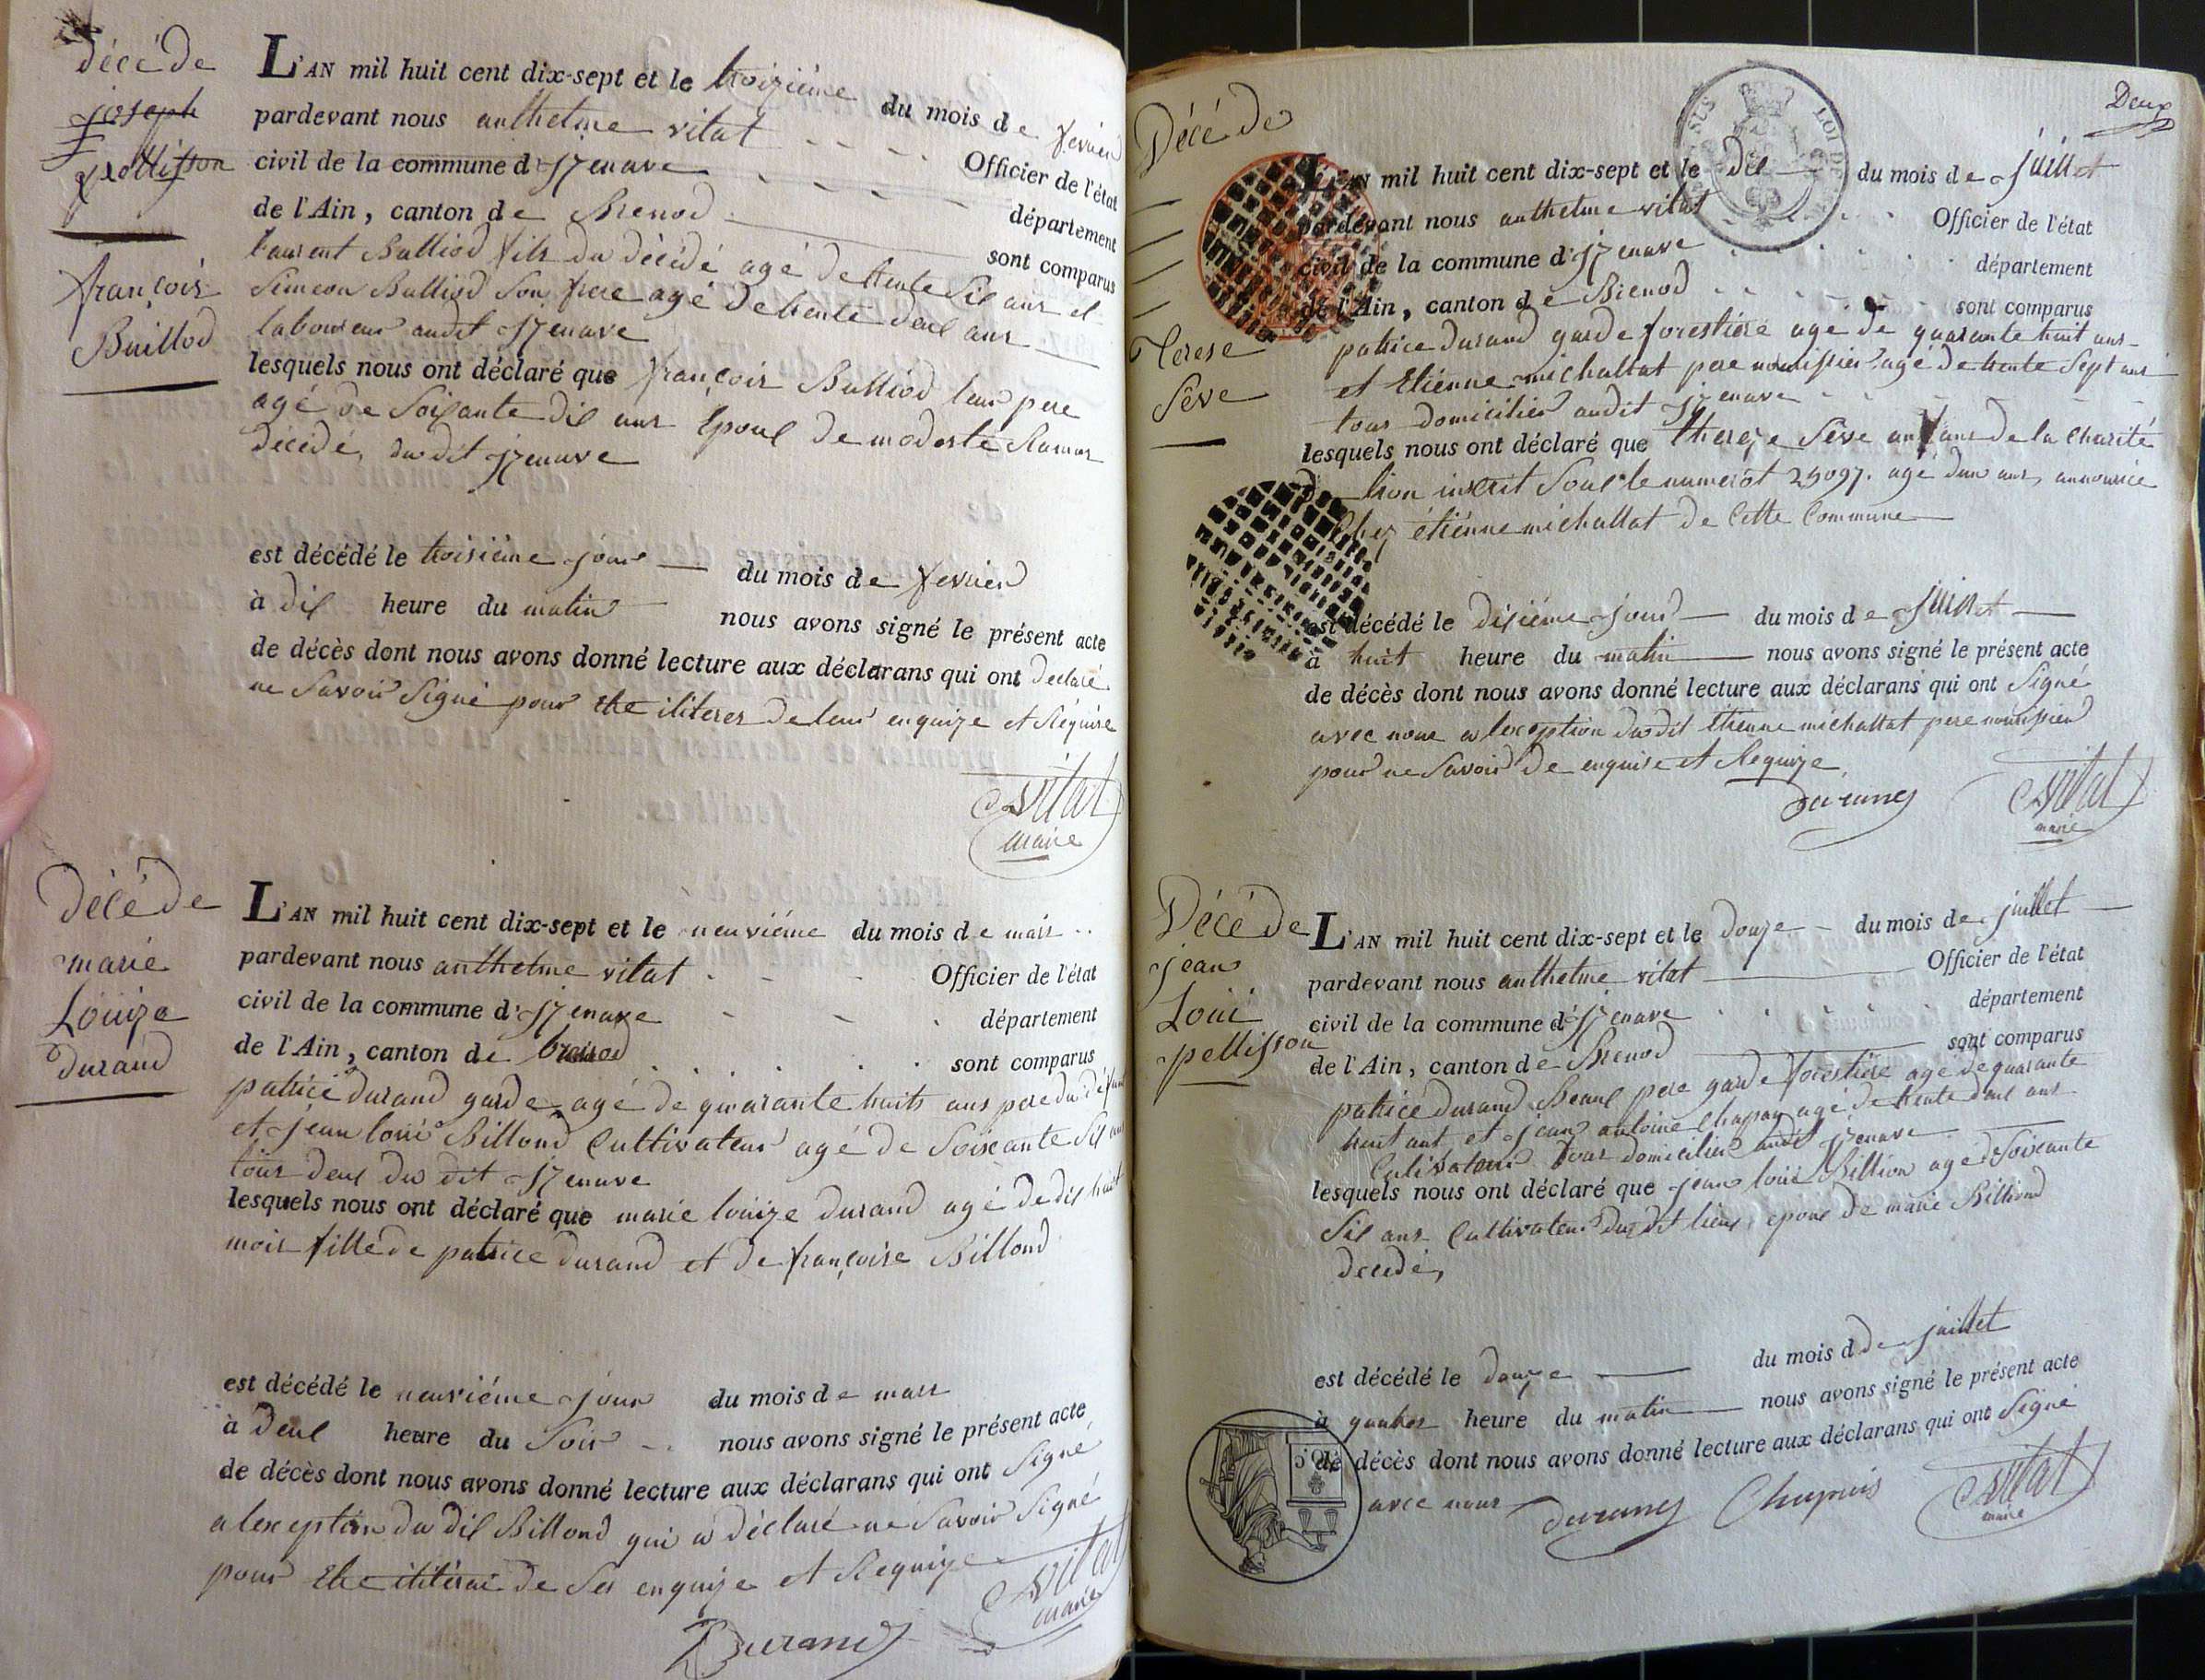 décé de
joseph
pellisson
françois
Buillod
L'AN mil huit cent dix-sept et le troizieme du mois de fevrier
pardevant nous anthelme vitat Officier de l'état
civil de la commune d'izenave département
de l'Ain, canton de Brenod sont comparus
laurent Balliod fils du décédé agé de trente sil ans et
Simeon Balliod son frere agé de trente deul ans
laboureur audit izenave
lesquels nous ont déclaré que françois Balliod leur pere
agé de soixante dil ans Epoul de modeste Ramus
décédé, du dit izenave
est décédé le troisième jour du mois de fevrier
à dil heure du matin nous avons signé le présent acte
de décès dont nous avons donné lecture aux déclarans qui ont déclaré
ne savoir signé pour etre iliteres de leur enquize et Réquise
Vitat
maire
décé de
marie
Louize
durand
L'AN mil huit cent dix-sept et le neuviéme du mois de mars
pardevant nous anthelme vitat Officier de l'état
civil de la commune d'izenave département
de l'Ain, canton de brenod sont comparus
patrice durand garde agé de quarante huits ans pere du défunt
et jean loui Billond Cultivateur agé de Soixante Sil ans
tous deul du dit izenave
lesquels nous ont déclaré que marie louize durand agé de dis huit
mois fille de patrice durand et de françoise Billond
est décédé le neuviéme jour du mois de mars
à deul heure du Soir nous avons signé le présent acte
de décès dont nous avons donné lecture aux déclarans qui ont Signé
a lexception du dil Billond qui a déclaré ne Savoir Signé
pour Etre ilitérai de Ses enquize et Requize
Vitat
maire
Durand
Deux
Décé de
Terese
Séve
L'AN mil huit cent dix-sept et le dil du mois de juillet
pardevant nous anthelme vitat Officier de l'état
civil de la commune d'izenave département
de l'Ain, canton de Brenod sont comparus
patrice durand garde forestiére age de quarante huit ans
et Etiénne michallat pere nourissier agé de trente Sept ans
tous domicilier audit izenave
lesquels nous ont déclaré que thereze Séve anfans de la Charité
d lion inscrit Soul le numerot 29097. agé dun ans, annourice
Chez étiénne michallat de Cette Commune
est décédé le diliéme jour du mois de juillet
à huit heure du matin nous avons signé le présent acte
de décès dont nous avons donné lecture aux déclarans qui ont Signé
avec nous a lexception dudit Etienne michallat pere nourissier
pour ne Savoir de enquise et Requize
Durand
Vitat
maire
Décé de
jean
Loui
pellisson
L'AN mil huit cent dix-sept et le douze du mois de juillet
pardevant nous anthelme vitat Officier de l'état
civil de la commune d'izenave département
de l'Ain, canton de Brenod sont comparus
patrice durand Beaul pere garde forestiére agé de quarante
huit ant et jean antoine Chapuy agé de trente deul ans
Cultivateur tous domicilié audit izenave
lesquels nous ont déclaré que jean loui Billion agé de Soixante
Sil ans Cultivateur du dit lieu, epoul de marie Billiond
decedé,
est décédé le douze du mois d de juillet
à quatres heure du matin nous avons signé le présent acte
de décès dont nous avons donné lecture aux déclarans qui ont Signé
avec nous Durand Chapuis Vitat
maire